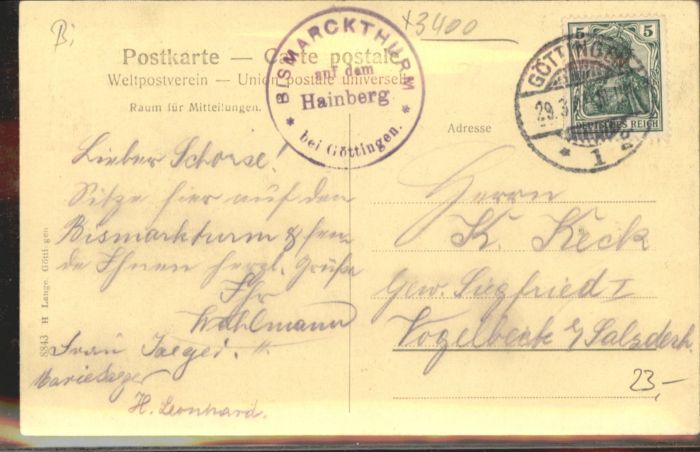 B.
+3400
Postkarte — Carte postale
Weltpostverein — Union postale universelle
Raum für Mitteilungen.
BISMARCKTHURM
auf dem
Hainberg
bei Göttingen.
Adresse
5 5
DEUTSCHES REICH
GÖTTINGEN
29.3.
* 1
Lieber Schorse!
Sitze hier auf den
Bismarkturm & sen-
de Ihnen herzl. Grüße
Ihr
Wahlmann
Frau Jaeger.
Marie Jaeger
H. Leonhard.
Herrn
K. Keck
Gew. Siegfried I
Vogelbeck b/ Salzderh
23,-
8843 H Lange, Göttingen